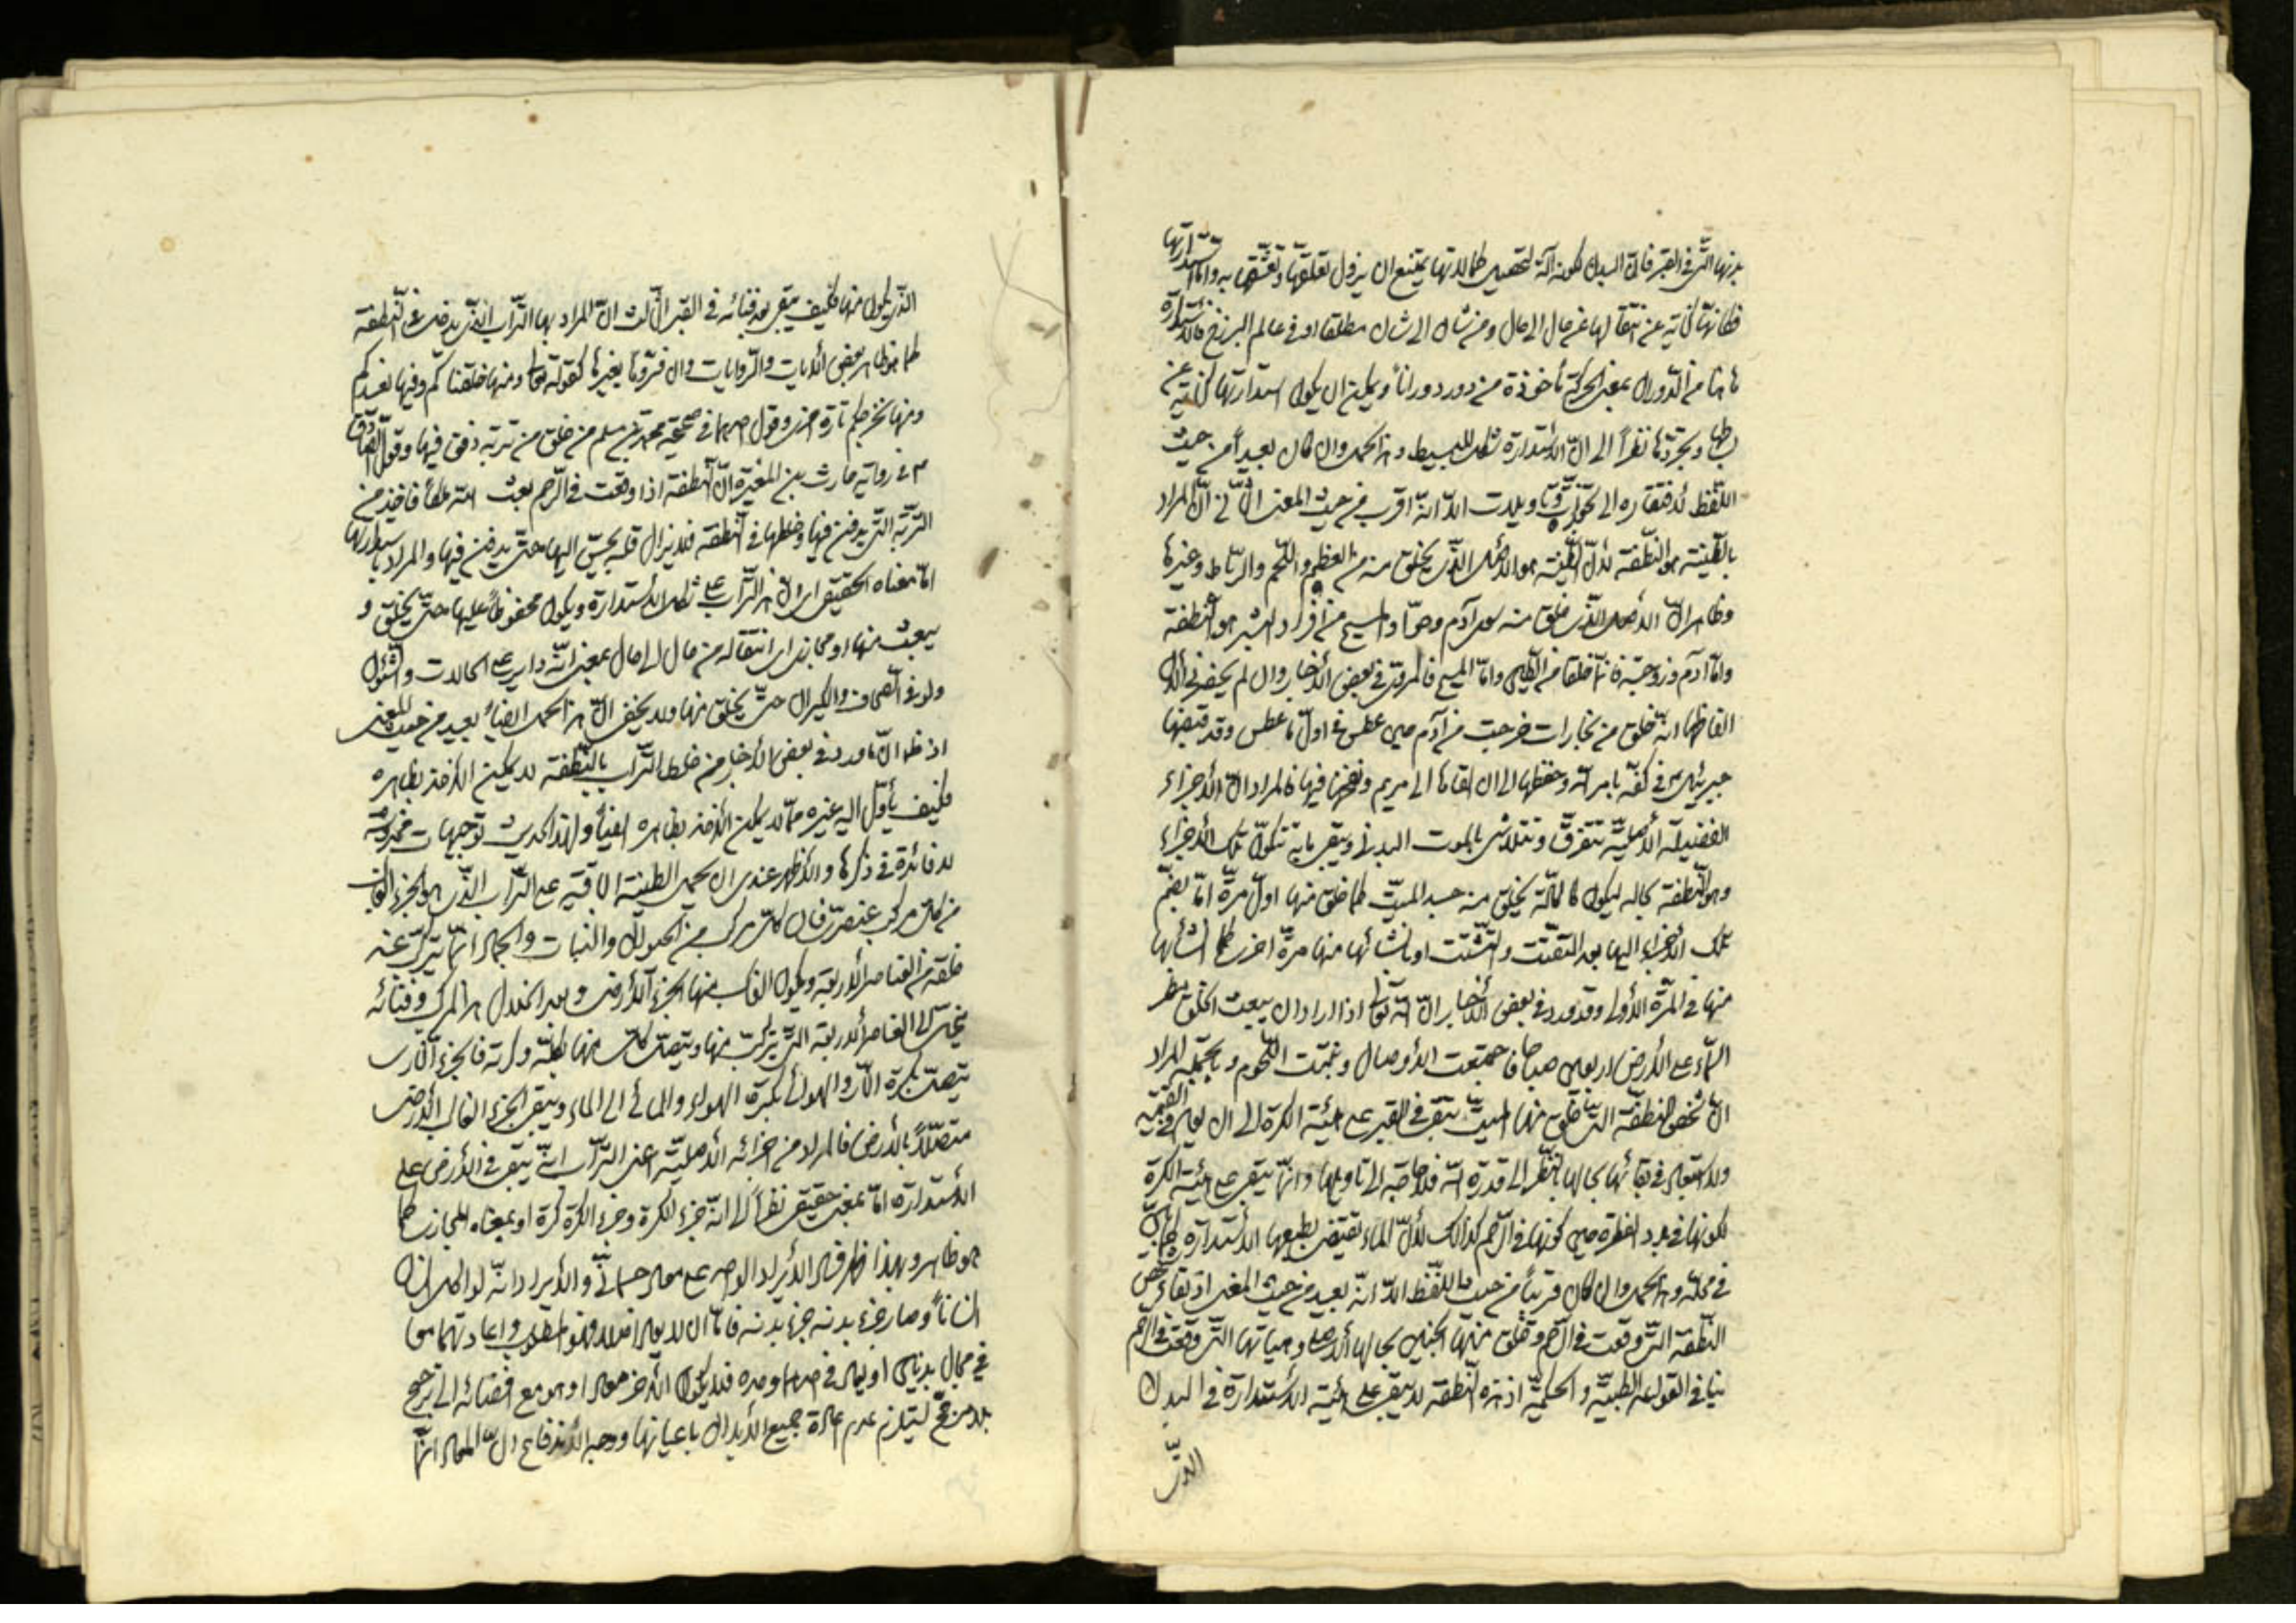 بدنها الّتي في القبر فانّ البدن لكونه آلة لتحصيل كمالاتها يمتنع ان يزول تعلقها وتعشّقها به وامّا استدارتها
فكانها كناية عن انتقالها من حال الى حال ومن شان الى شان مطلقا او في عالم البرزخ فالاستدارة
هاهنا من الدوران بمعنى الحركة مأخوذة من دار دورا ودورانا ويمكن ان يكون استدارتها كناية عن
بساطتها وتجرّدها نظراً الى انّ الاستدارة شكل للبسيط وهذا الحمل وان كان بعيداً من حيث
اللّفظ لافتقاره الى تجوّزات وتاويلات الّا انّه اقرب من حيث المعنى الثّاني انّ المراد
بالطّينة هو النّطفة لانّ الطّينة هو الاصل الّذي يخلق منه العظم واللّحم والرّباط وغيرها
وظاهر انّ الاصل الّذي خلق منه سوى آدم وحوّا والمسيح من افراد البشر هو النّطفة
وامّا آدم وزوجته فانّهما خلقا من الطّين وامّا المسيح فالمروي في بعض الأخبار وان لم يحضرني الآن
الفاظها انّه خلق من بخارات خرجت من آدم حين عطس في اوّل ما عطس وقد قبضها
جبرئيل في كفّه بامر اللّه وحفظها الى ان القاها الى مريم ونفخها فيها فالمراد انّ الأجزاء
الفضليّة الأصليّة تتفرّق وتتلاشى بالموت البدني ويبقى ما به تتكوّن تلك الأجزاء
وهو النّطفة بحاله ليكون كالمادّة يخلق منه جسد الميّت كما خلق منها اوّل مرّة امّا بضمّ
تلك الأجزاء اليها بعد التفتّت والتشتّت او بانشائها منها مرّة اخرى كما انشأها
منها في المرّة الأولى وقد ورد في بعض الأخبار انّ اللّه تعالى اذا اراد ان يبعث الخلق مطر
السّماء على الأرض اربعين صباحا فاجتمعت الأوصال ونبتت اللّحوم وبالجملة المراد
انّ شخص النطفة الّتي خلق منها الميّت يبقى في القبر على هيئة الكرة الى ان يعاد في القيمة
ولا استبعاد في بقائها بحالها بالنّظر الى قدرة اللّه فلا حاجة الى تاويلها وانّما يبقى على هيئة الكرة
لكونها في بدو الفطرة حين كونها في الرّحم كذالك لانّ الماء يقتضي بطبعها الاستدارة كما بيّن
في محلّه وهذا الحمل وان كان قريباً من حيث اللّفظ الّا انّه بعيد من حيث المعنى اذ بقاء شخص
النّطفة الّتي وقعت في الرّحم وخلق منها الجنين بحالها الأصلي وهيأتها الّتي وقعت في الرّحم
ينافي القواعد الطبيّة والحكميّة اذ هذه النّطفة لا يبقى على هيئة الاستدارة في البدن
الّذي
الّذي يكون منها فكيف يبقى بعد فنائه في القبر الثّالث انّ المراد بها التّراب الّذي يدخل في النّطفة
كما هو ظاهر بعض الآيات والرّوايات وان فسّروها بغيرها كقوله تعالى ومنها خلقناكم وفيها نعيدكم
ومنها نخرجكم تارة اخرى وقول احدهما في صحيحة محمّد بن مسلم من خلق من تربة دفن فيها وقول الصّادق
ع في رواية حارث بن المغيرة انّ النّطفة اذا وقعت في الرّحم بعث اللّه ملكاً فاخذ من
التّربة الّتي يدفن فيها وخلطها في النّطفة فلا يزال قلبه يحنّ اليها حتّى يدفن فيها والمراد باستدارتها
امّا معناه الحقيقي اي انّ هذا التّراب على شكل الاستدارة ويكون محفوظاً عليها حتّى يخلق و
يبعث منها او مجازي اي انتقاله من حال الى حال بمعنى انّه داير على الحالات والشّئون
ولو في الصّحاف والكيزان حتّى يخلق منها ولا يخفى انّ هذا الحمل ايضاً بعيد من حيث المعنى
اذ ظهر انّ ما ورد في بعض الأخبار من خلط التّراب بالنّطفة لا يمكن الأخذ بظاهره
فكيف يأوّل اليه غيره ممّا لا يمكن الأخذ بظاهره ايضاً ولهذا الحديث توجيهات مخدوشة
لا فائدة في ذكرها والأظهر عندي ان يحمل الطينة الباقية على التّراب الّذي هو الجزء الغالب
من كلّ مركب عنصري فان كلّ مركب من الحيوان والنبات والجماد انّما يتركّب عند
خلقه من العناصر الأربعة ويكون الغالب منها الجزء الأرضي وبعد انحلال هذا المركب وفنائه
ينحلّ الى العناصر الأربعة الّتي تركّب منها ويتّصل كلّ منها بكليّته وكرته فالجزء النّاري
يتّصل بكرة النّار والهوائي بكرة الهواء والمائي الى الماء ويبقى الجزء الغالب الأرضي
متصلاً بالأرض فالمراد من اجزائه الأصليّة اعني التّراب انّه يبقى في الأرض على
الاستدارة امّا بمعنى حقيقي نظراً الى انّه جزء للكرة وجزء الكرة كرة او بمعناه المجازي كما
هو ظاهر وبهذا ظهر فساد الأيراد الوارد على معاد جسماني والأيراد انّه لو اكل انسان
انساناً وصار جزء بدنه جزء بدنه فامّا ان لا يعاد اصلا وهو المطلوب واعادتهما معا
في محال بديهي او يعاد في احدهما وحده فلا يكون الآخر معادا وهو مع افضائه الى ترجيح
بلا مرجّح يستلزم عدم اعادة جميع الأبدان باعيانها ووجه الأندفاع انّ المعاد انّما